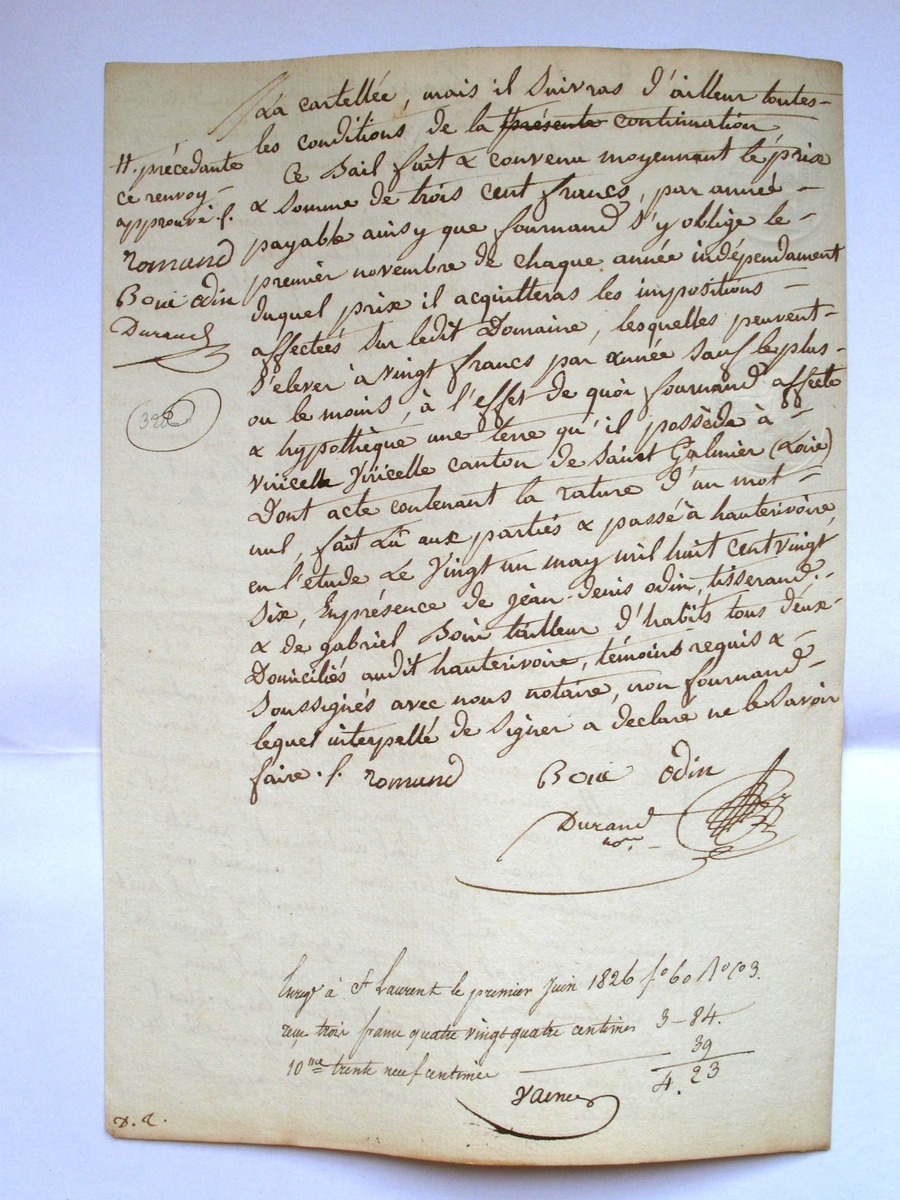 La cartellée, mais il suivras d'ailleur toutes
les conditions de la présente continuation
Ce Bail fait & convenu moyennant le prix
& somme de trois cent francs, par année
payable ainsy que fournand s'y oblige le
premier novembre de chaque année indépendament
duquel prix il acquitteras les impositions
affectées sur ledit Domaine, lesquelles peuvent
s'elever à vingt francs par année sauf le plus
ou le moins, à l'effet de quoi fournand affecte
& hypothèque une terre qu'il possède à
viricelle Viricelle canton de Saint Galmier (Loire)
Dont acte contenant la rature d'un mot
nul, fait Lû aux parties & passé à hauterivoire,
en l'étude Le Vingt un may mil huit cent vingt
Six, En présence de jean-denis odin, tisserand
& de gabriel Boui tailleur d'habits tous deux
Domiciliés audit hauterivoire, témoins requis &
Soussignés avec nous notaire, non fournand
lequel interpellé de signer a déclaré ne le savoir
faire. /. romand Boui odin
Durand
nore.
H. précédante
ce renvoy
approuvé /.
romand
Boui odin
Durand
Enregé à St Laurent le premier Juin 1826 fo 60 Ro Co 3.
reçu trois franc quatre vingt quatre centimes 3-84.
39
10me trente neuf centimes
4.23
D. R.